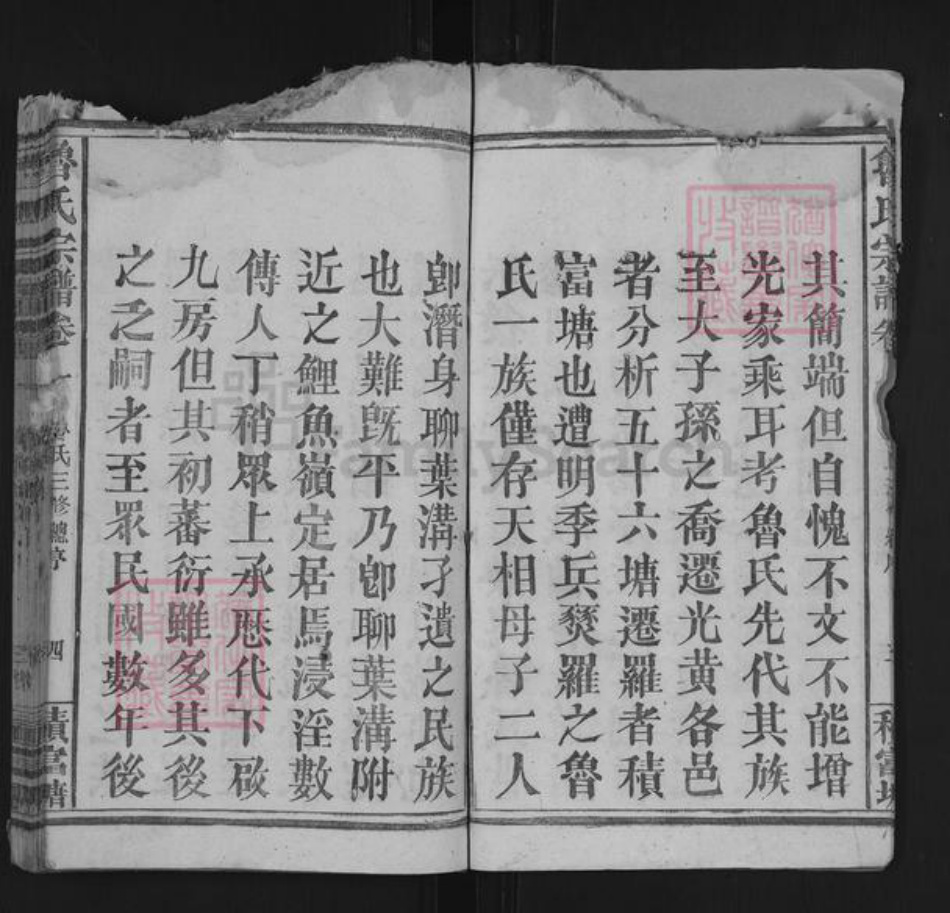 其簡端但自愧不文不能增
光家乘耳考魯氏先代其族
至大子孫之喬遷光黄各邑
者分析五十六塘遷羅者積
富塘也遭明季兵燹羅之魯
氏一族僅存天相母子二人
卽潛身聊葉溝孑遺之民族
也大難旣平乃卽聊葉溝附
近之鯉魚嶺定居焉浸淫數
傳人丁稍眾上承歷代下啟
九房但其初蕃衍雖多其後
之乏嗣者至眾民國數年後
魯氏宗譜卷一
魯氏三修總序
四
積富塘
FamilySearch